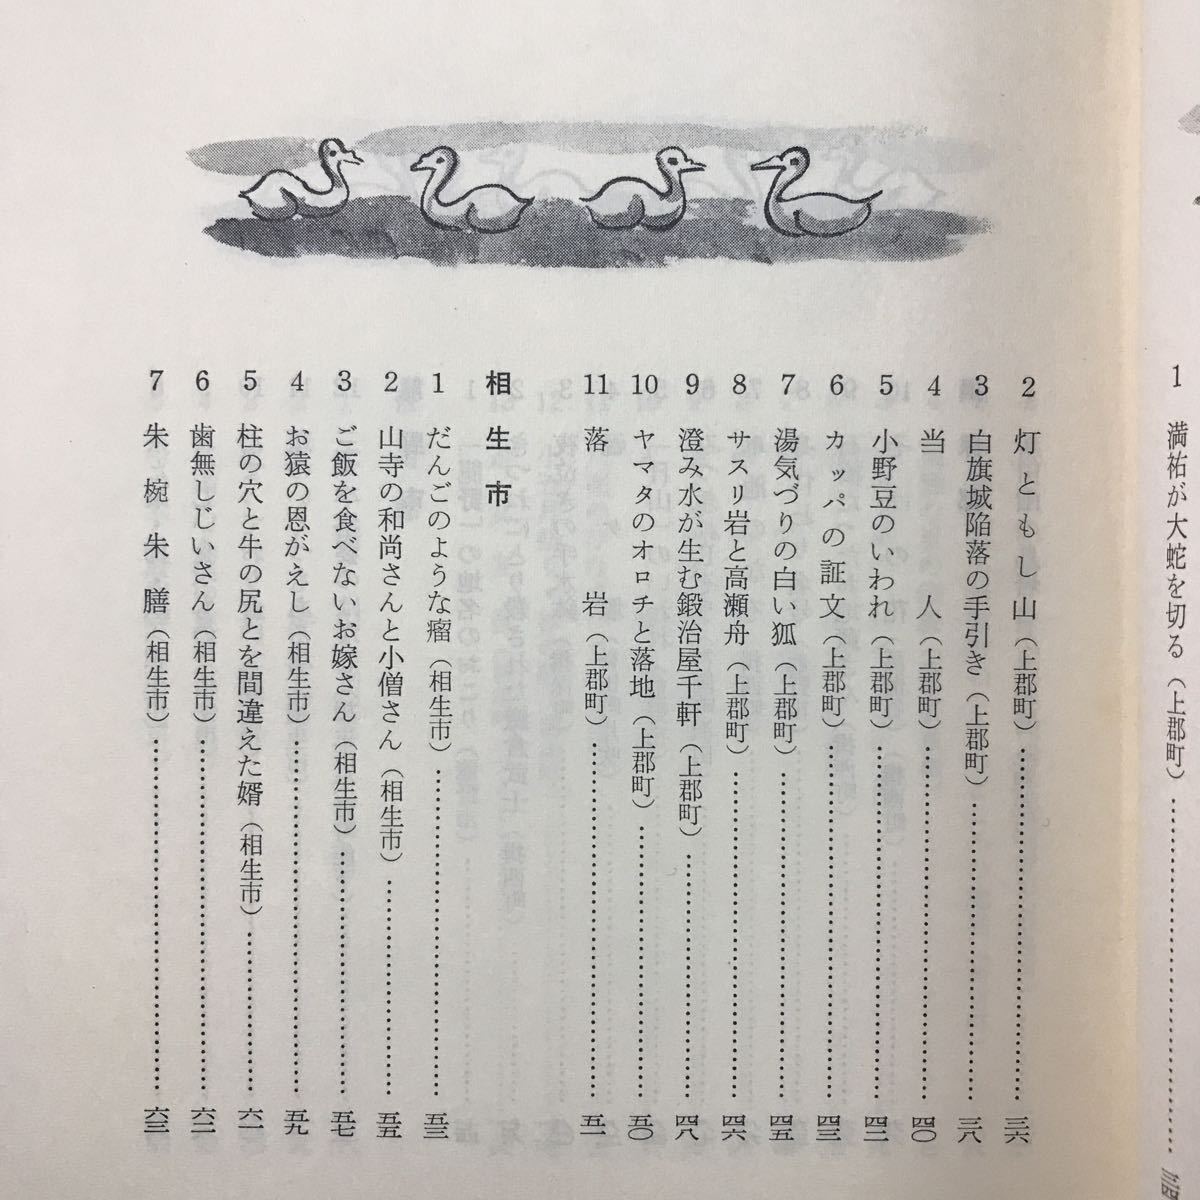 1 満祐が大蛇を切る（上郡町）
2 灯ともし山（上郡町）…………三六
3 白旗城陥落の手引き（上郡町）…………三八
4 当人（上郡町）…………四〇
5 小野豆のいわれ（上郡町）…………四二
6 カッパの証文（上郡町）…………四三
7 湯気づりの白い狐（上郡町）…………四五
8 サスリ岩と高瀬舟（上郡町）…………四六
9 澄み水が生む鍛治屋千軒（上郡町）…………四八
10 ヤマタのオロチと落地（上郡町）…………五〇
11 落岩（上郡町）…………五一
相生市
1 だんごのような瘤（相生市）…………五三
2 山寺の和尚さんと小僧さん（相生市）…………五五
3 ご飯を食べないお嫁さん（相生市）…………五七
4 お猿の恩がえし（相生市）…………五九
5 柱の穴と牛の尻とを間違えた婿（相生市）…………六一
6 歯無しじいさん（相生市）…………六二
7 朱椀朱膳（相生市）…………六三